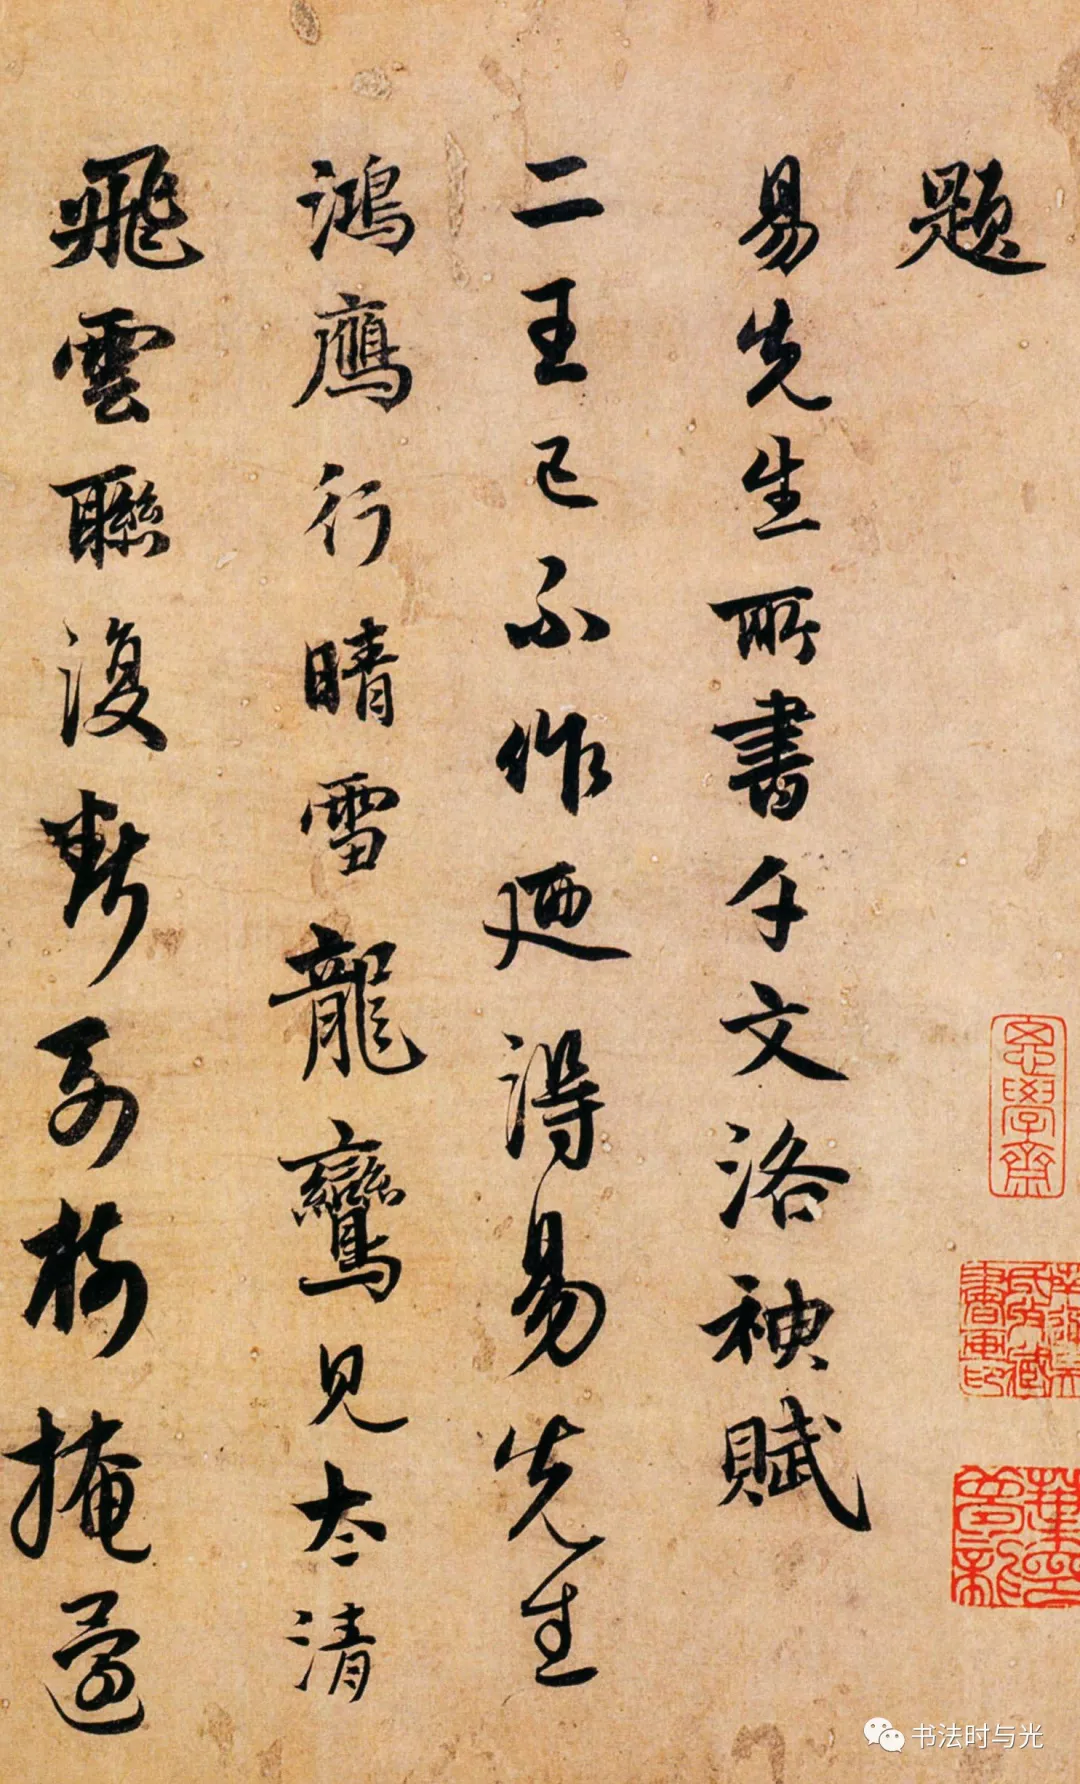 題
易先生所書千文洛神賦
二王已不作迺得易先生
鴻鴈行晴雪龍鸞見太清
飛雲聯復斷列樹掩還
思學齋
书法时与光